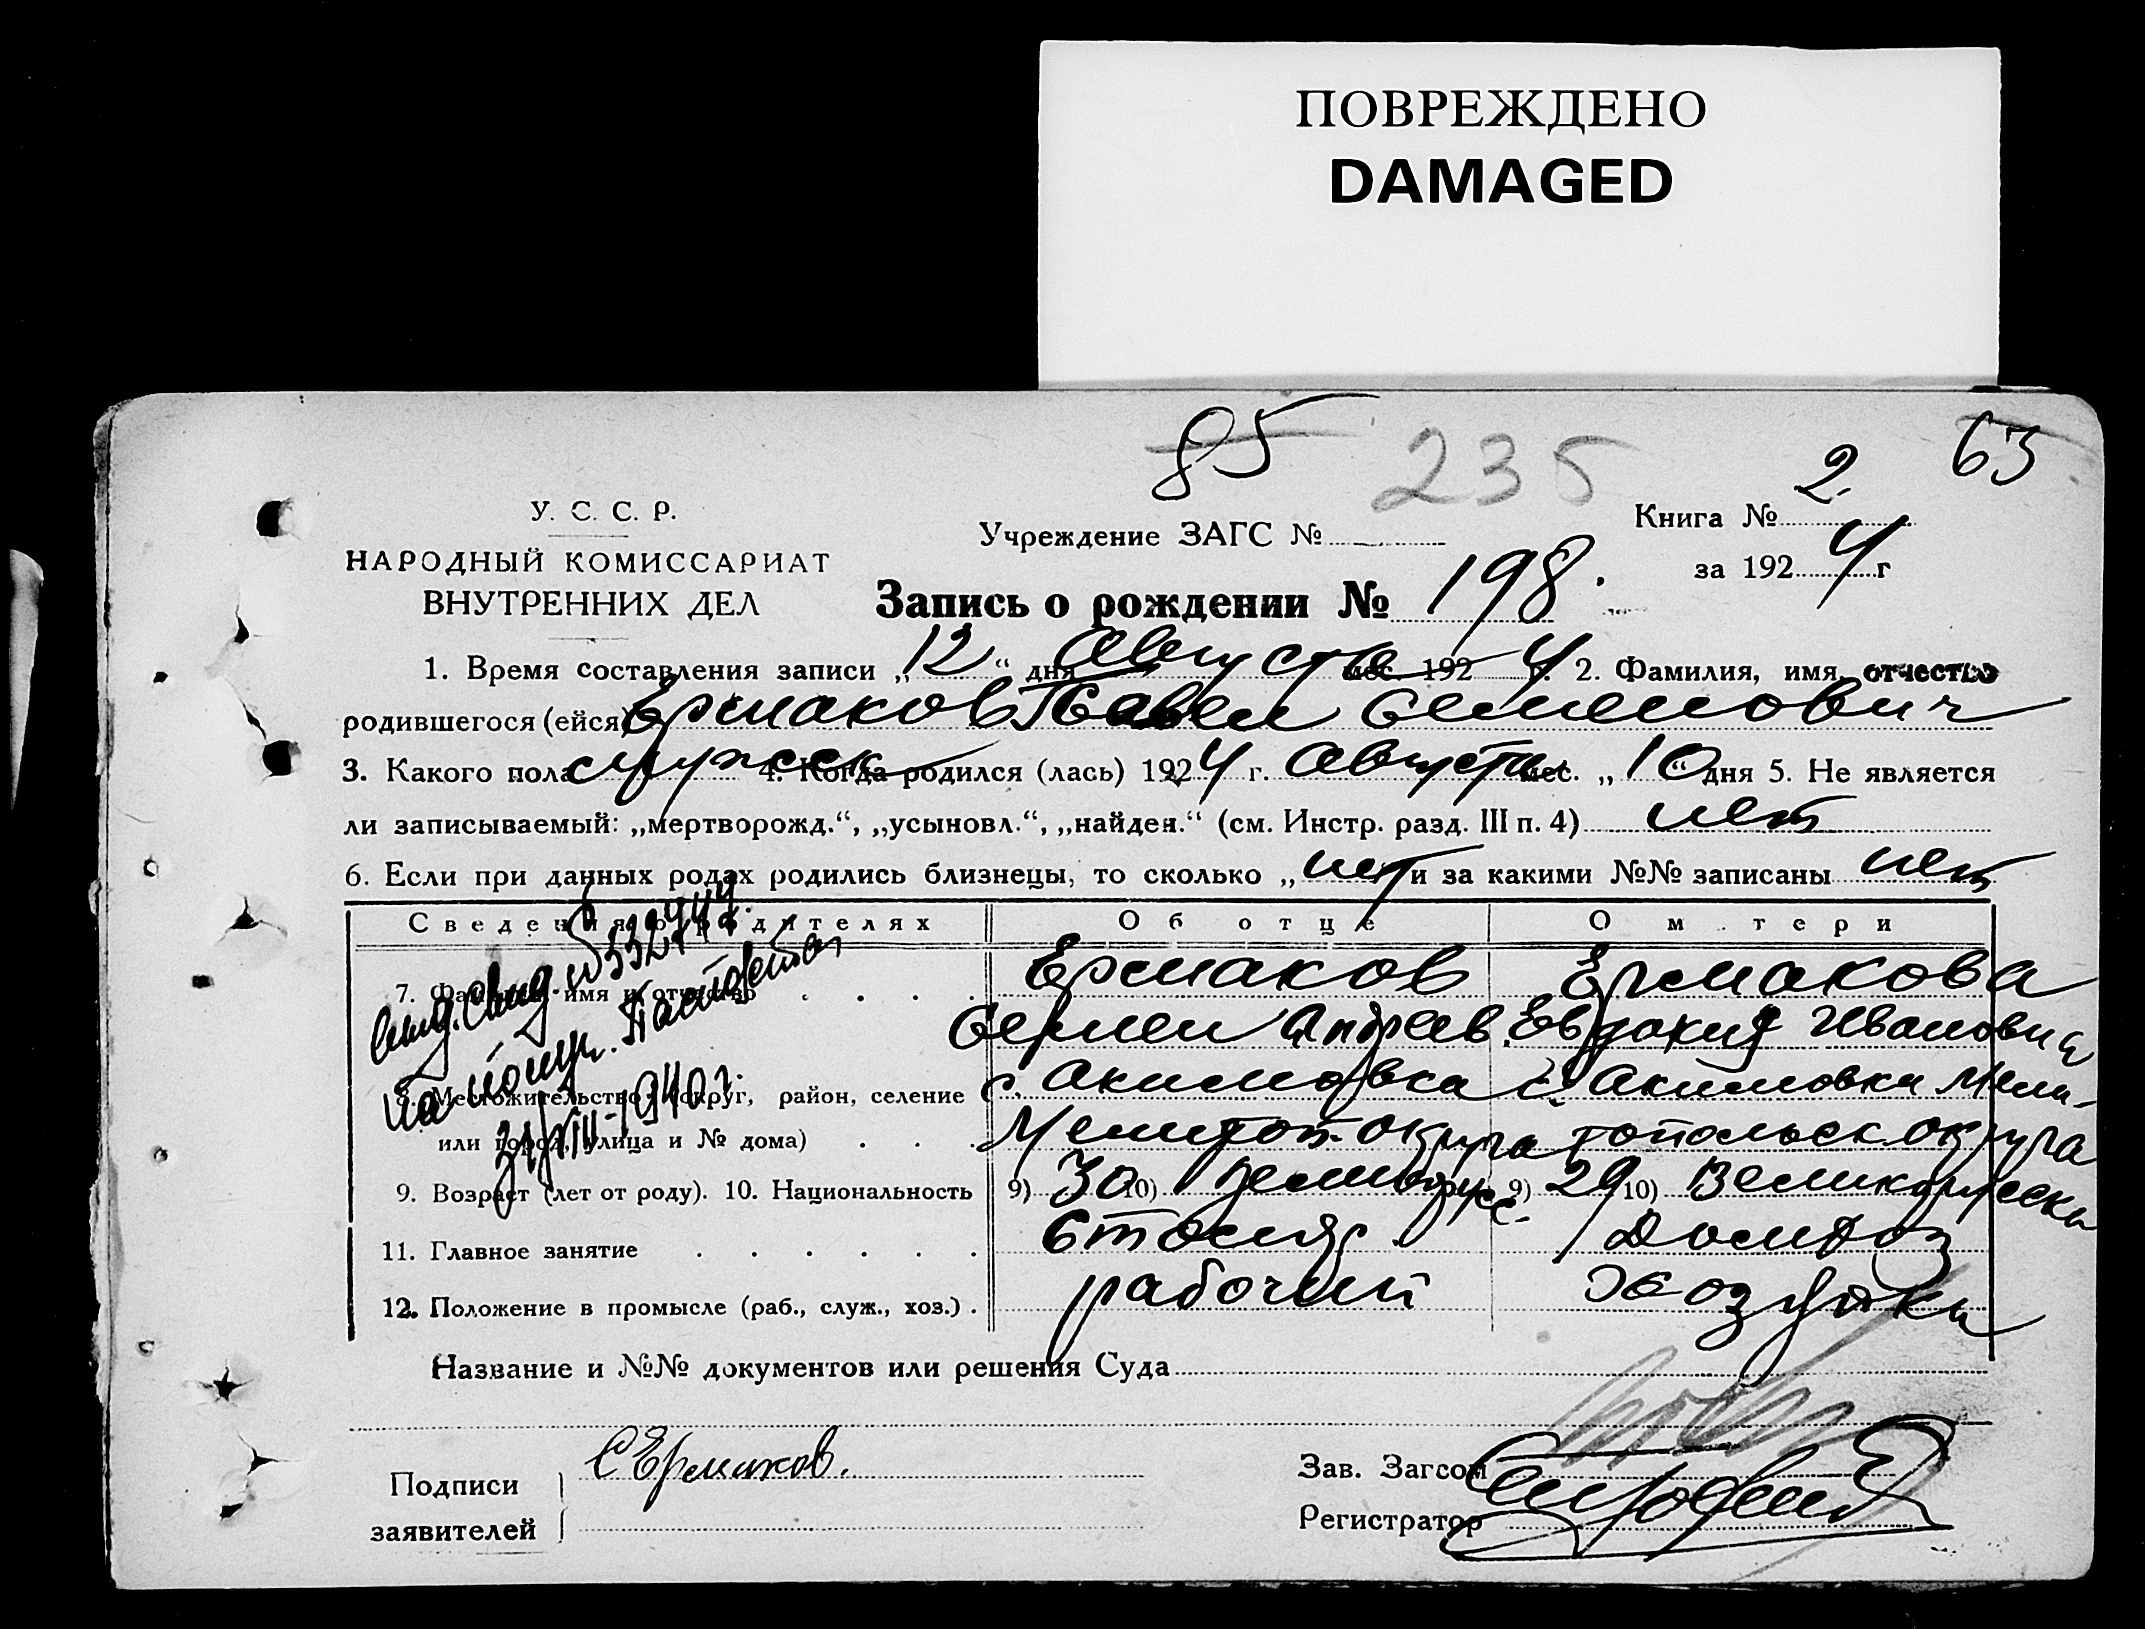 ПОВРЕЖДЕНО
DAMAGED
85 235 63
У. С. С. Р.
НАРОДНЫЙ КОМИССАРИАТ
ВНУТРЕННИХ ДЕЛ
Учреждение ЗАГС №
Книга № 2.
за 1924 г
Запись о рождении № 198.
1. Время составления записи „12“ дня Августа мес. 1924 г. 2. Фамилия, имя, отчество
родившегося (ейся) Ермаков Павел Семенович
3. Какого пола мужск 4. Когда родился (лась) 1924 г. Августа мес. „10“ дня 5. Не является
ли записываемый: „мертворожд.“, „усыновл.“, „найден.“ (см. Инстр. разд. III п. 4) нет
6. Если при данных родах родились близнецы, то сколько „ нет и за какими №№ записаны нет
Сведения о родителях Об отце О м тери
7. Фамилия, имя и отчество . . . . Ермаков Ермакова
Семен Андреев. Евдокия Иванович
8. Местожительство (округ, район, селение с. Акимовка с. Акимовки Мели-
или город, улица и № дома) . . . Мелитоп. округа топольск округа
9. Возраст (лет от роду). 10. Национальность 9) 30 10) Великорусс. 9) 29 10) Великорусска
11. Главное занятие . . . . . . Столяр Домхоз
12. Положение в промысле (раб., служ., хоз.) . рабочий хозяйка
выд. свид. №
на
31/VIII-1940 г.
Название и №№ документов или решения Суда
Подписи
заявителей
С Ермаков.
Зав. Загсом
Регистратор